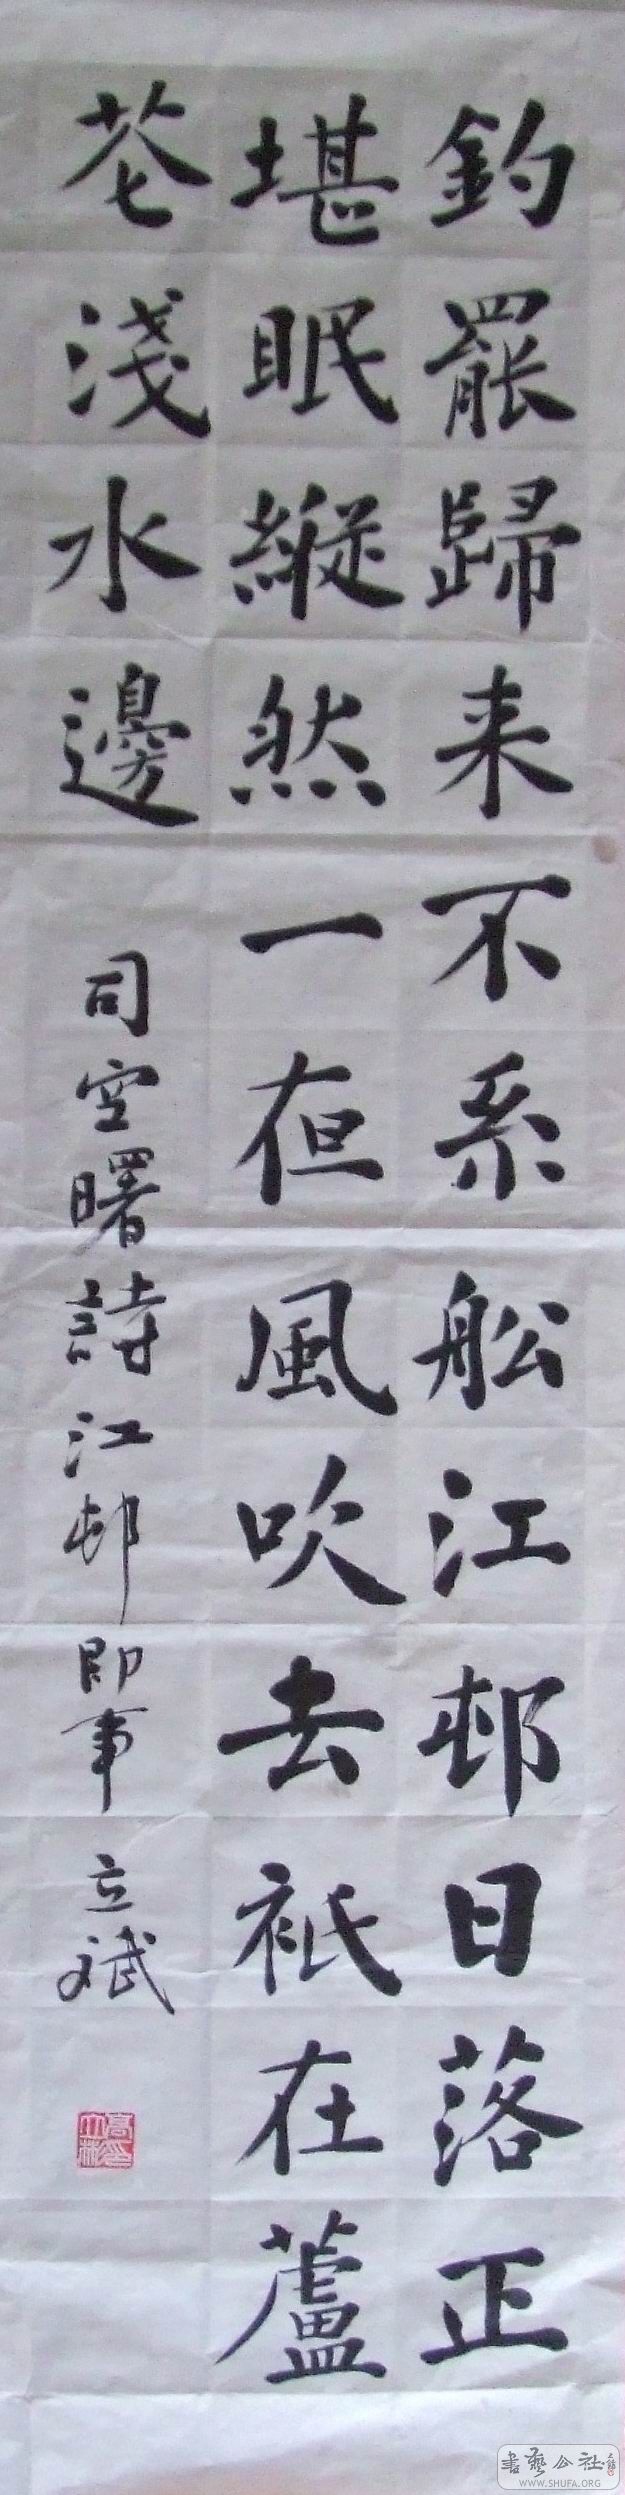 釣罷歸来不系舩江邨日落正
堪眠縱然一夜風吹去衹在蘆
花淺水邊
司空曙詩江邨即事 立斌
書藝公社
WWW.SHUFA.ORG